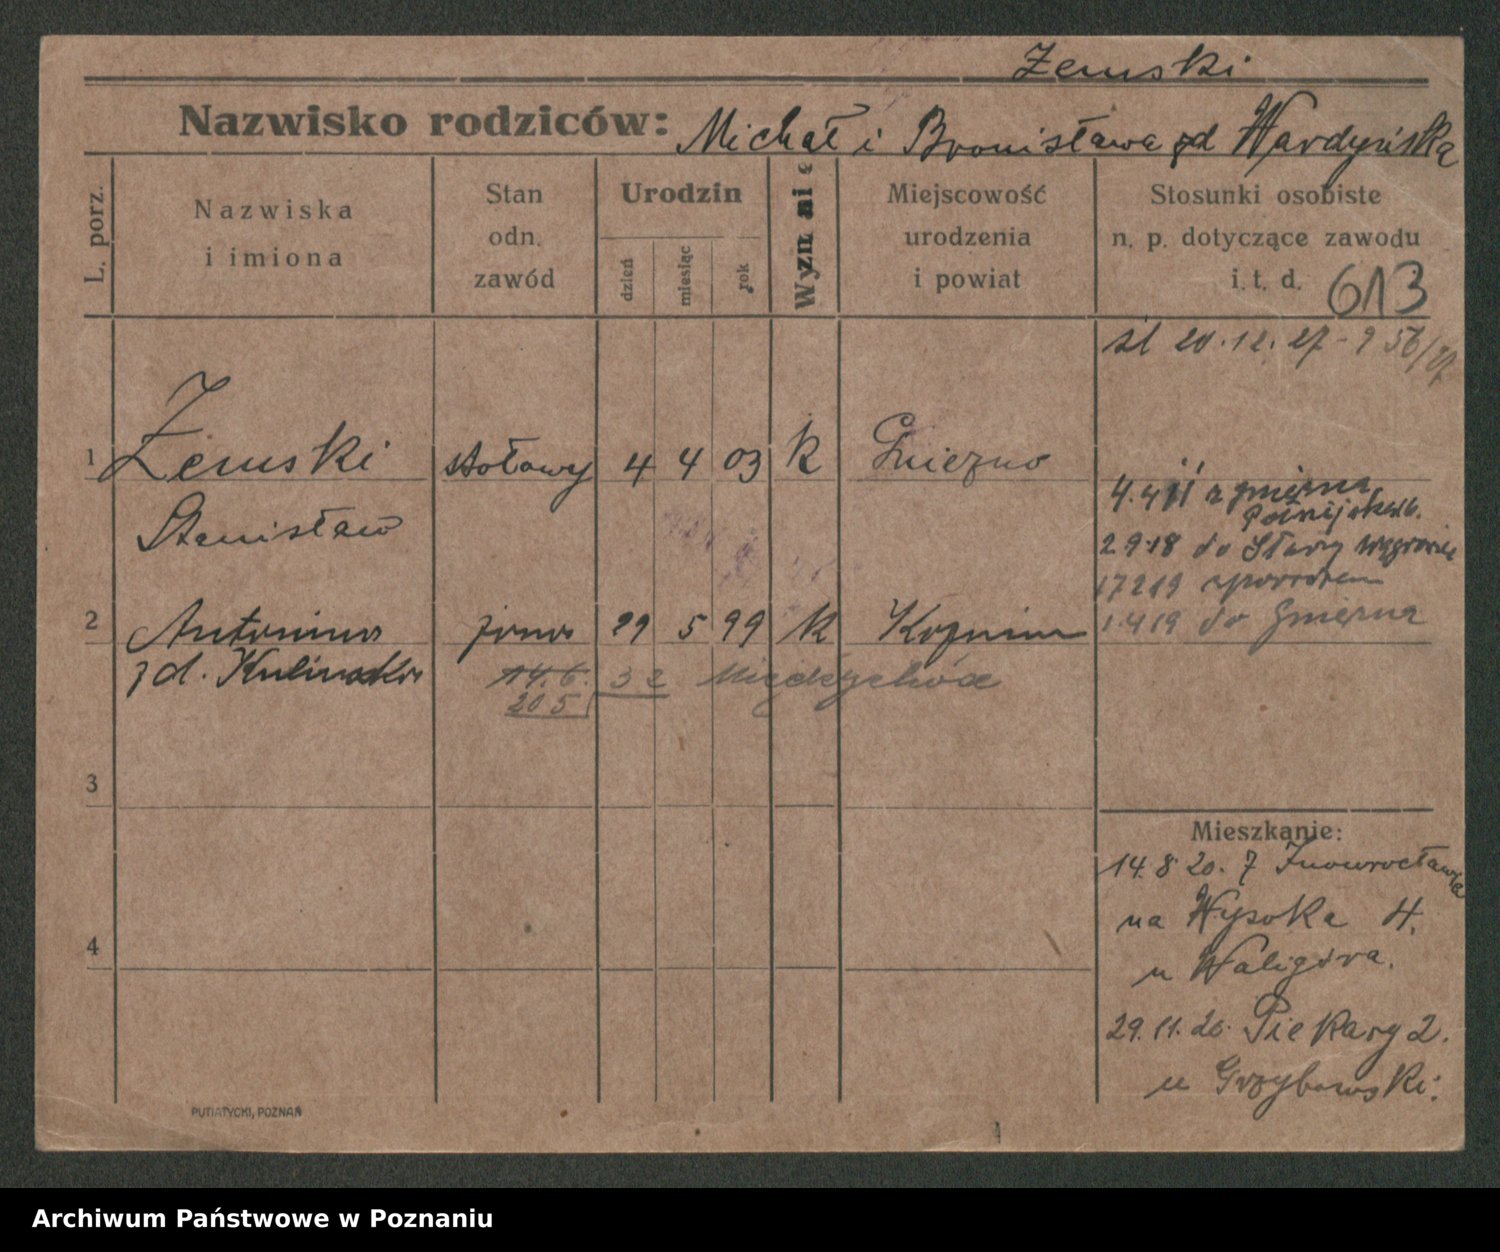 Żemski
Nazwisko rodziców: Michał i Bronisława zd Wardyńska
L. porz.
Nazwiska
i imiona
Stan
odn.
zawód
Urodzin
dzień
miesiąc
rok
Wyznanie
Miejscowość
urodzenia
i powiat
Stosunki osobiste
n. p. dotyczące zawodu
i. t. d.
613
śl 20.12.27 - 956/27
1 Żemski stołowy 4 4 03 k Gniezno
Stanisław
4.4 z Gniezna
2.9.18 do Wągrowiec
17 2 19 zpowrotem
1.4 19 do Gniezna
2 Antonina żona 29 5 99 k Koźmin
zd. Kulinska 14.6. 32 Międzychód
20 5
3
4
Mieszkanie:
14.8.20. z Inowrocławia
na Wysoka 4.
u Waligóra.
29.11.20. Piekary 2.
u Grzybowski.
PUTIATYCKI, POZNAŃ
Archiwum Państwowe w Poznaniu